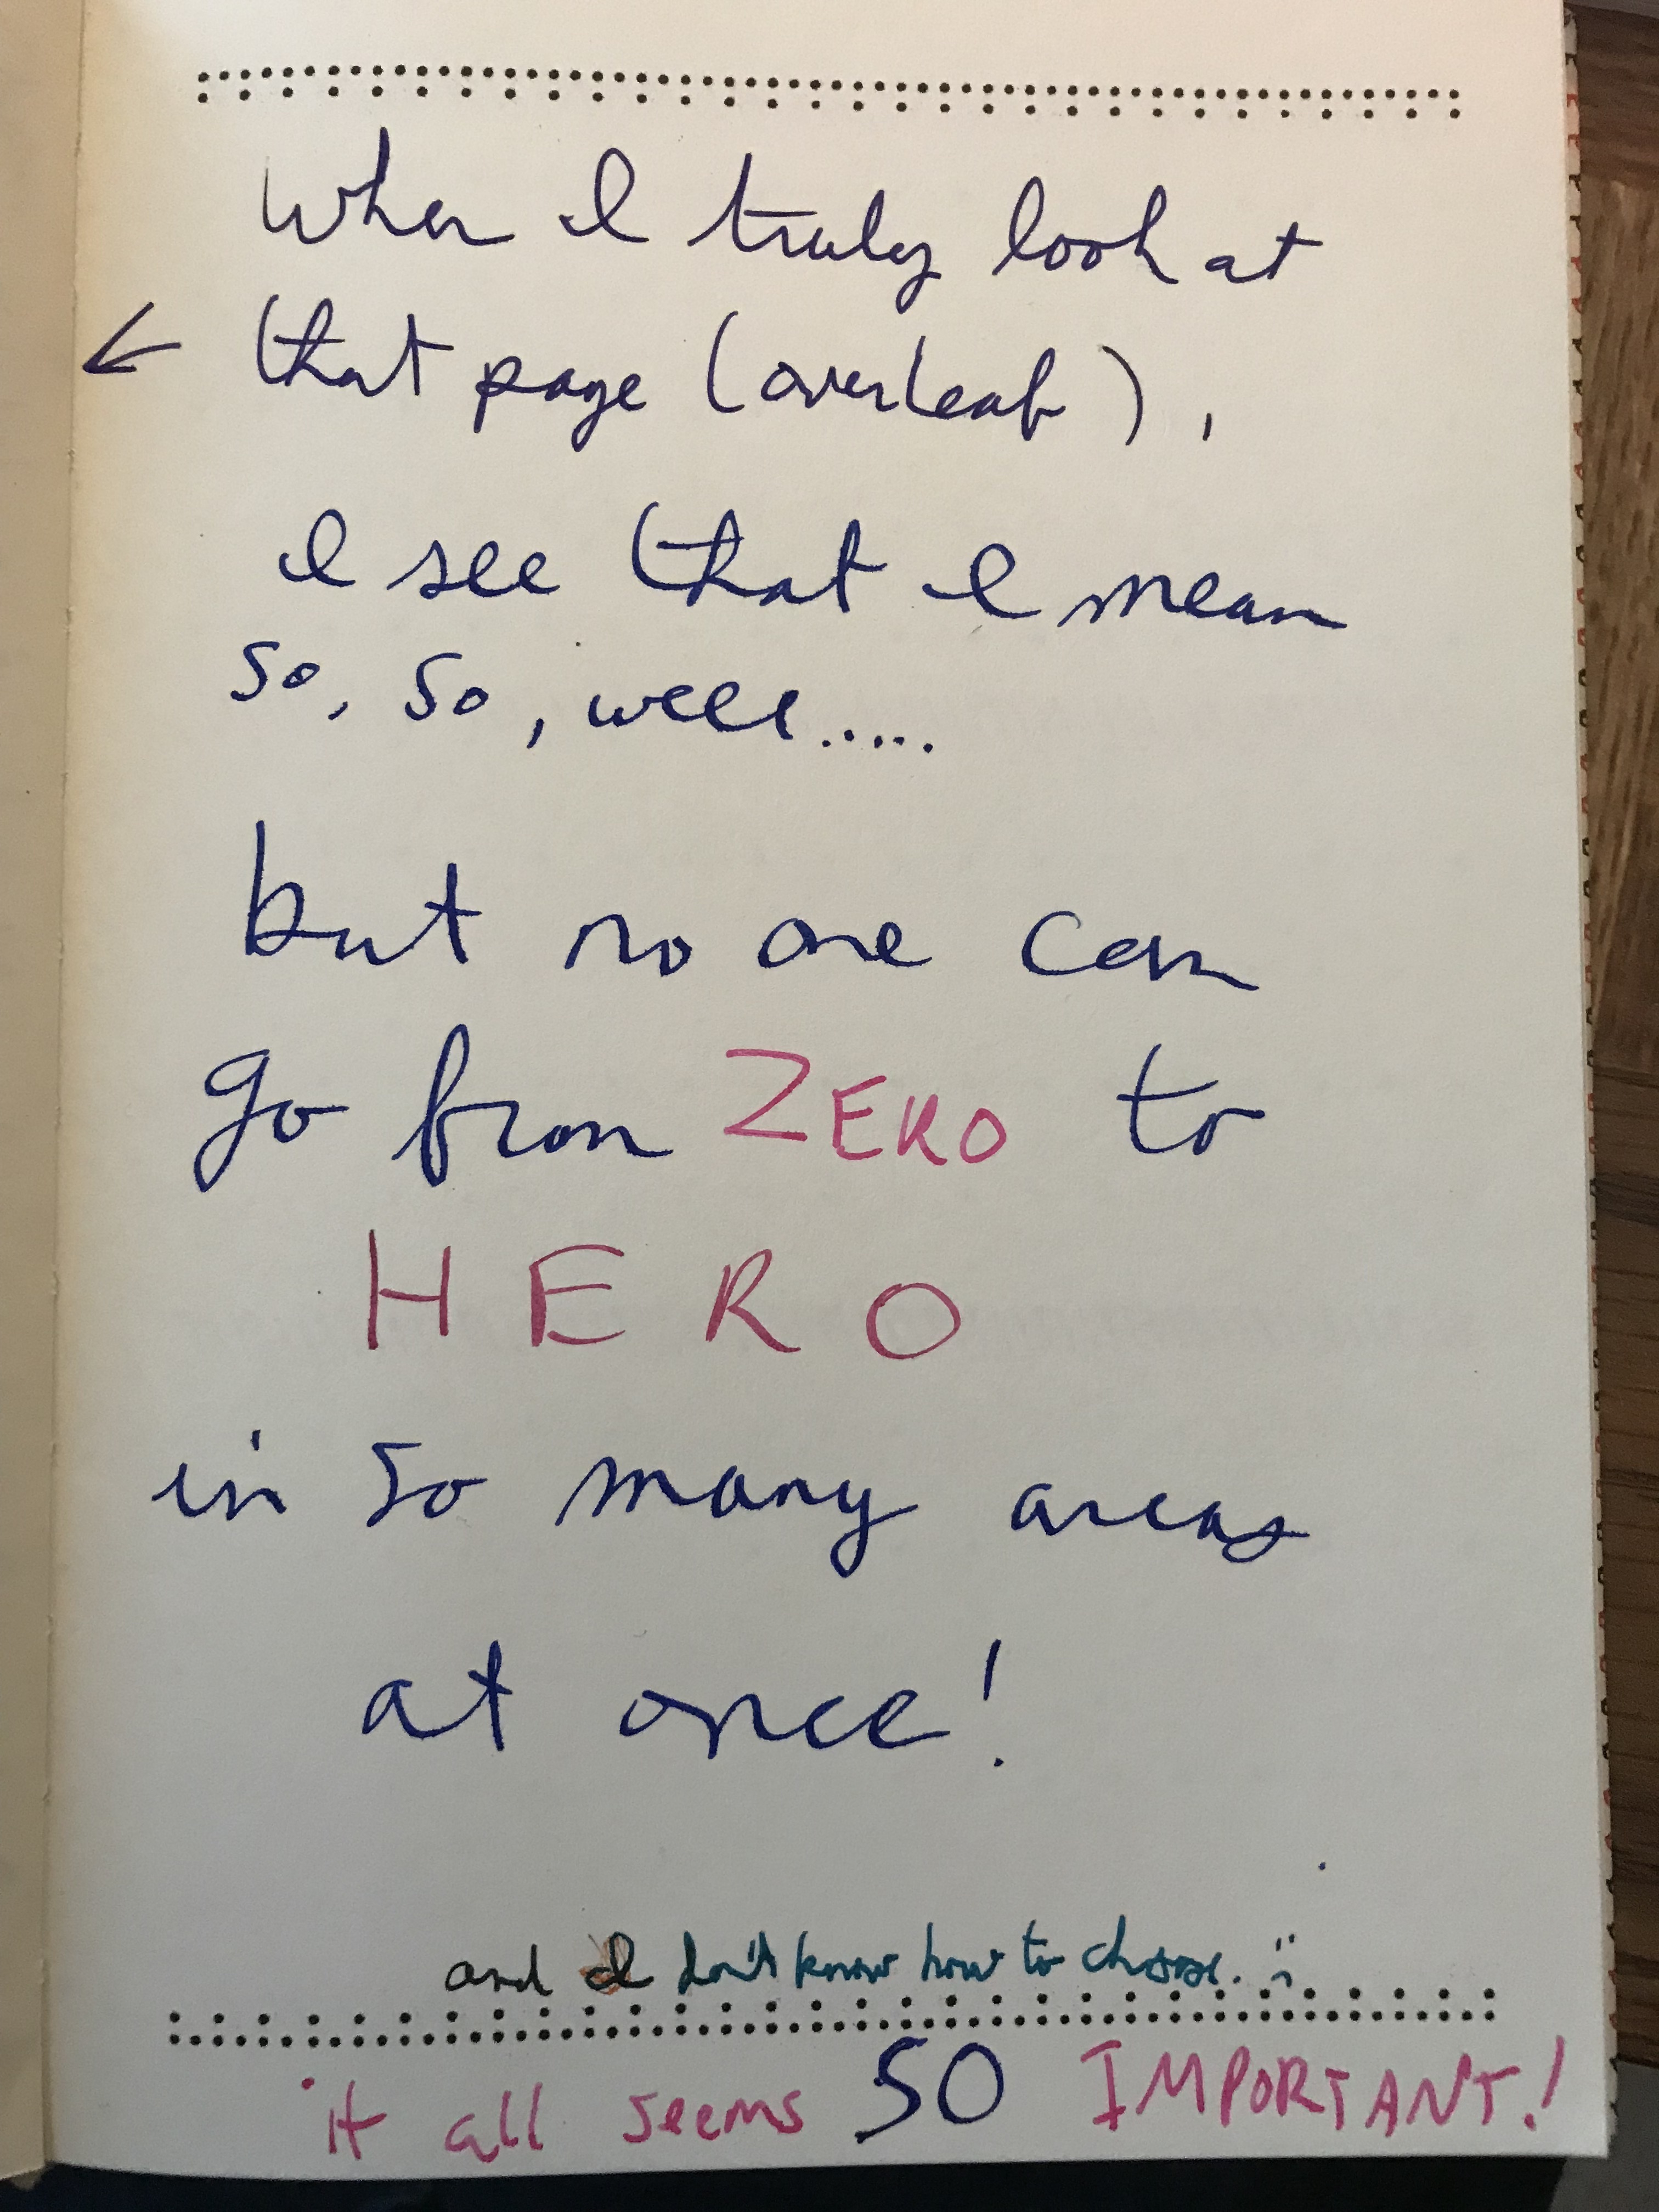 When I truly look at
← that page (overleaf),
I see that I mean
so, so, well.....
but no one can
go from ZERO to
HERO
in so many areas
at once!
and I don't know how to choose. :(
it all seems SO IMPORTANT!